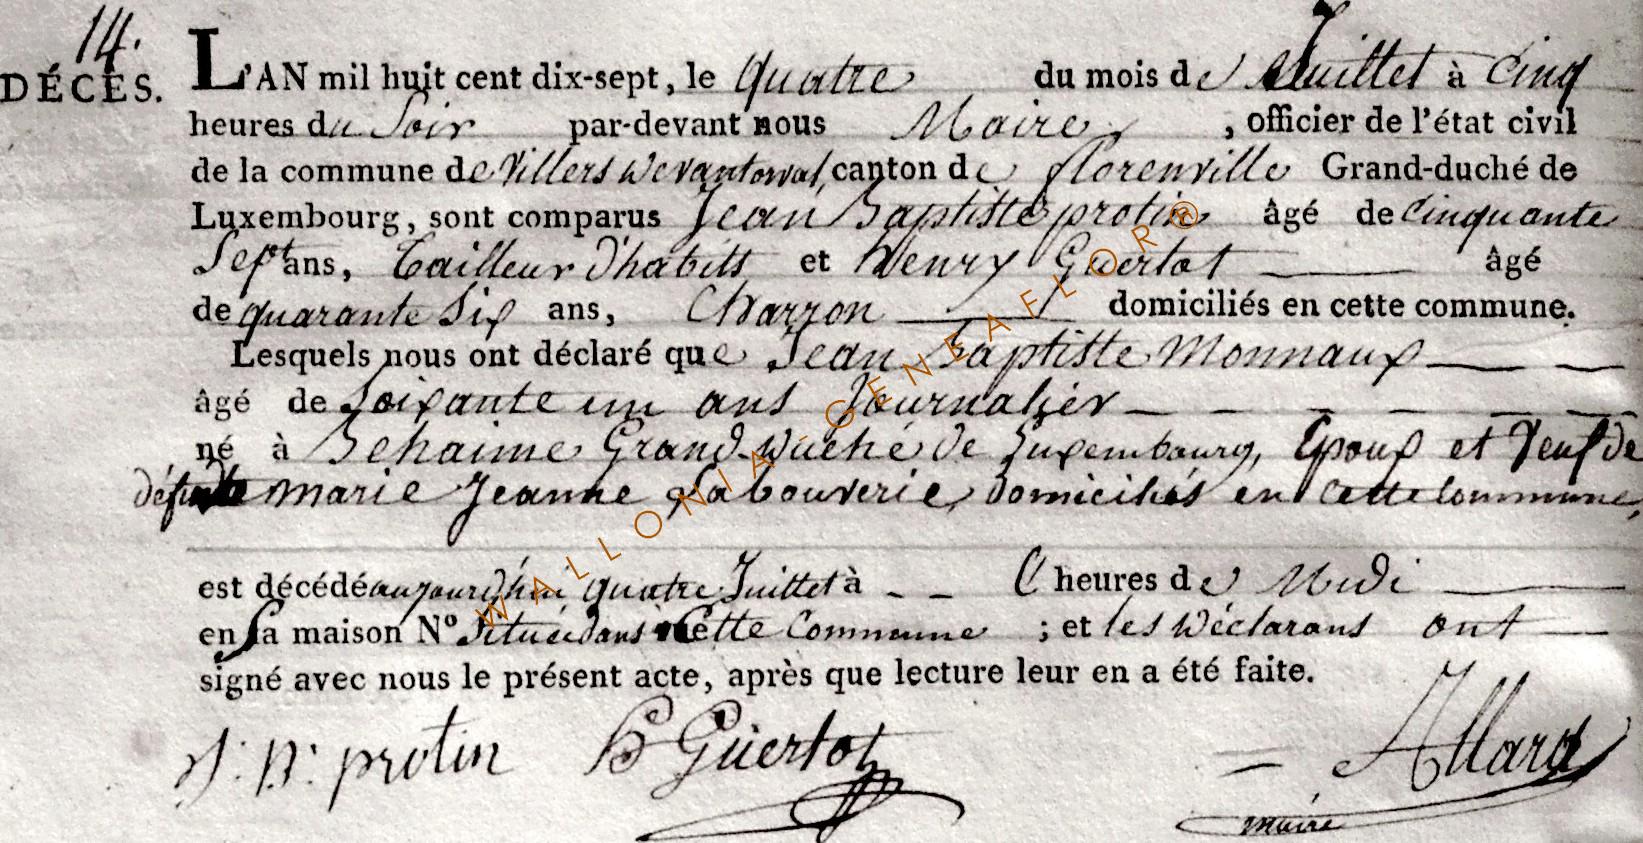 14.
DÉCÈS. L'AN mil huit cent dix-sept, le quatre du mois de Juillet à Cinq
heures du Soir par-devant nous Maire, officier de l'état civil
de la commune de Villers devant orval, canton de florenville Grand-duché de
Luxembourg, sont comparus Jean Baptiste protin âgé de Cinquante
Sept ans, Tailleur d'habits et henry Guertot âgé
de quarante Six ans, Charron domiciliés en cette commune.
Lesquels nous ont déclaré que Jean Baptiste Monnaux
âgé de Soixante un ans Journalier
né à Behaime Grand duché de Luxembourg, Epoux et Veuf de
défunte marie Jeanne Labouverie, domiciliés en cette Commune,
est décédé aujourd'hui quatre Juillet à heures de Midi
en Sa maison N° Située dans Cette Commune ; et les déclarans ont
signé avec nous le présent acte, après que lecture leur en a été faite.
J: B: protin h Guertot Allard
maire
WALLONIA-GENEAFLOR®